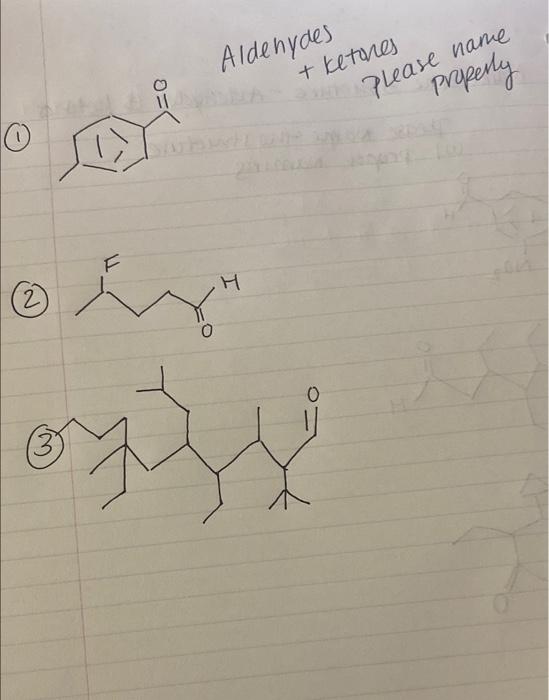 Aldehydes
+ ketones
please name
properly
①
O
②
F
H
O
③
O